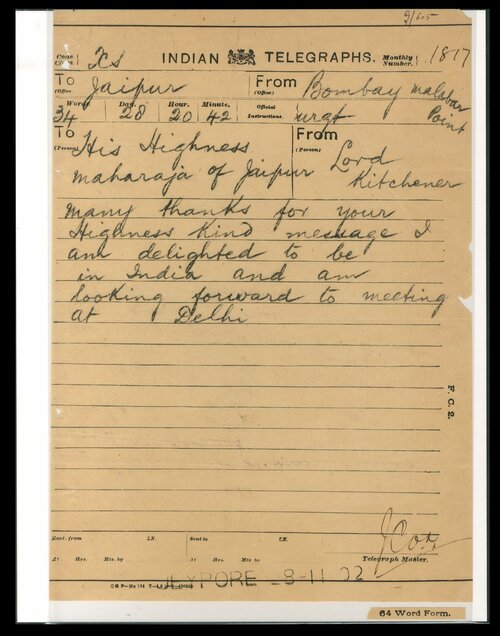 9/605
Code Class. Xs INDIAN TELEGRAPHS. Monthly Number. 1817
To (Office) Jaipur From (Office) Bombay malabar Point
Words. Day. Hour. Minute. Official Instructions.
34 28 20 42 urgt
To (Person) His Highness maharaja of Jaipur
From (Person) Lord Kitchener
many thanks for your
Highness kind message I
am delighted to be
in India and am
looking forward to meeting
at Delhi
F. C. 2.
Recd. from I.N. Sent to I.N.
At Hrs. Mts. by At Hrs. Mts. by
J Cox
Telegraph Master.
JEYPORE 8-11 02
64 Word Form.